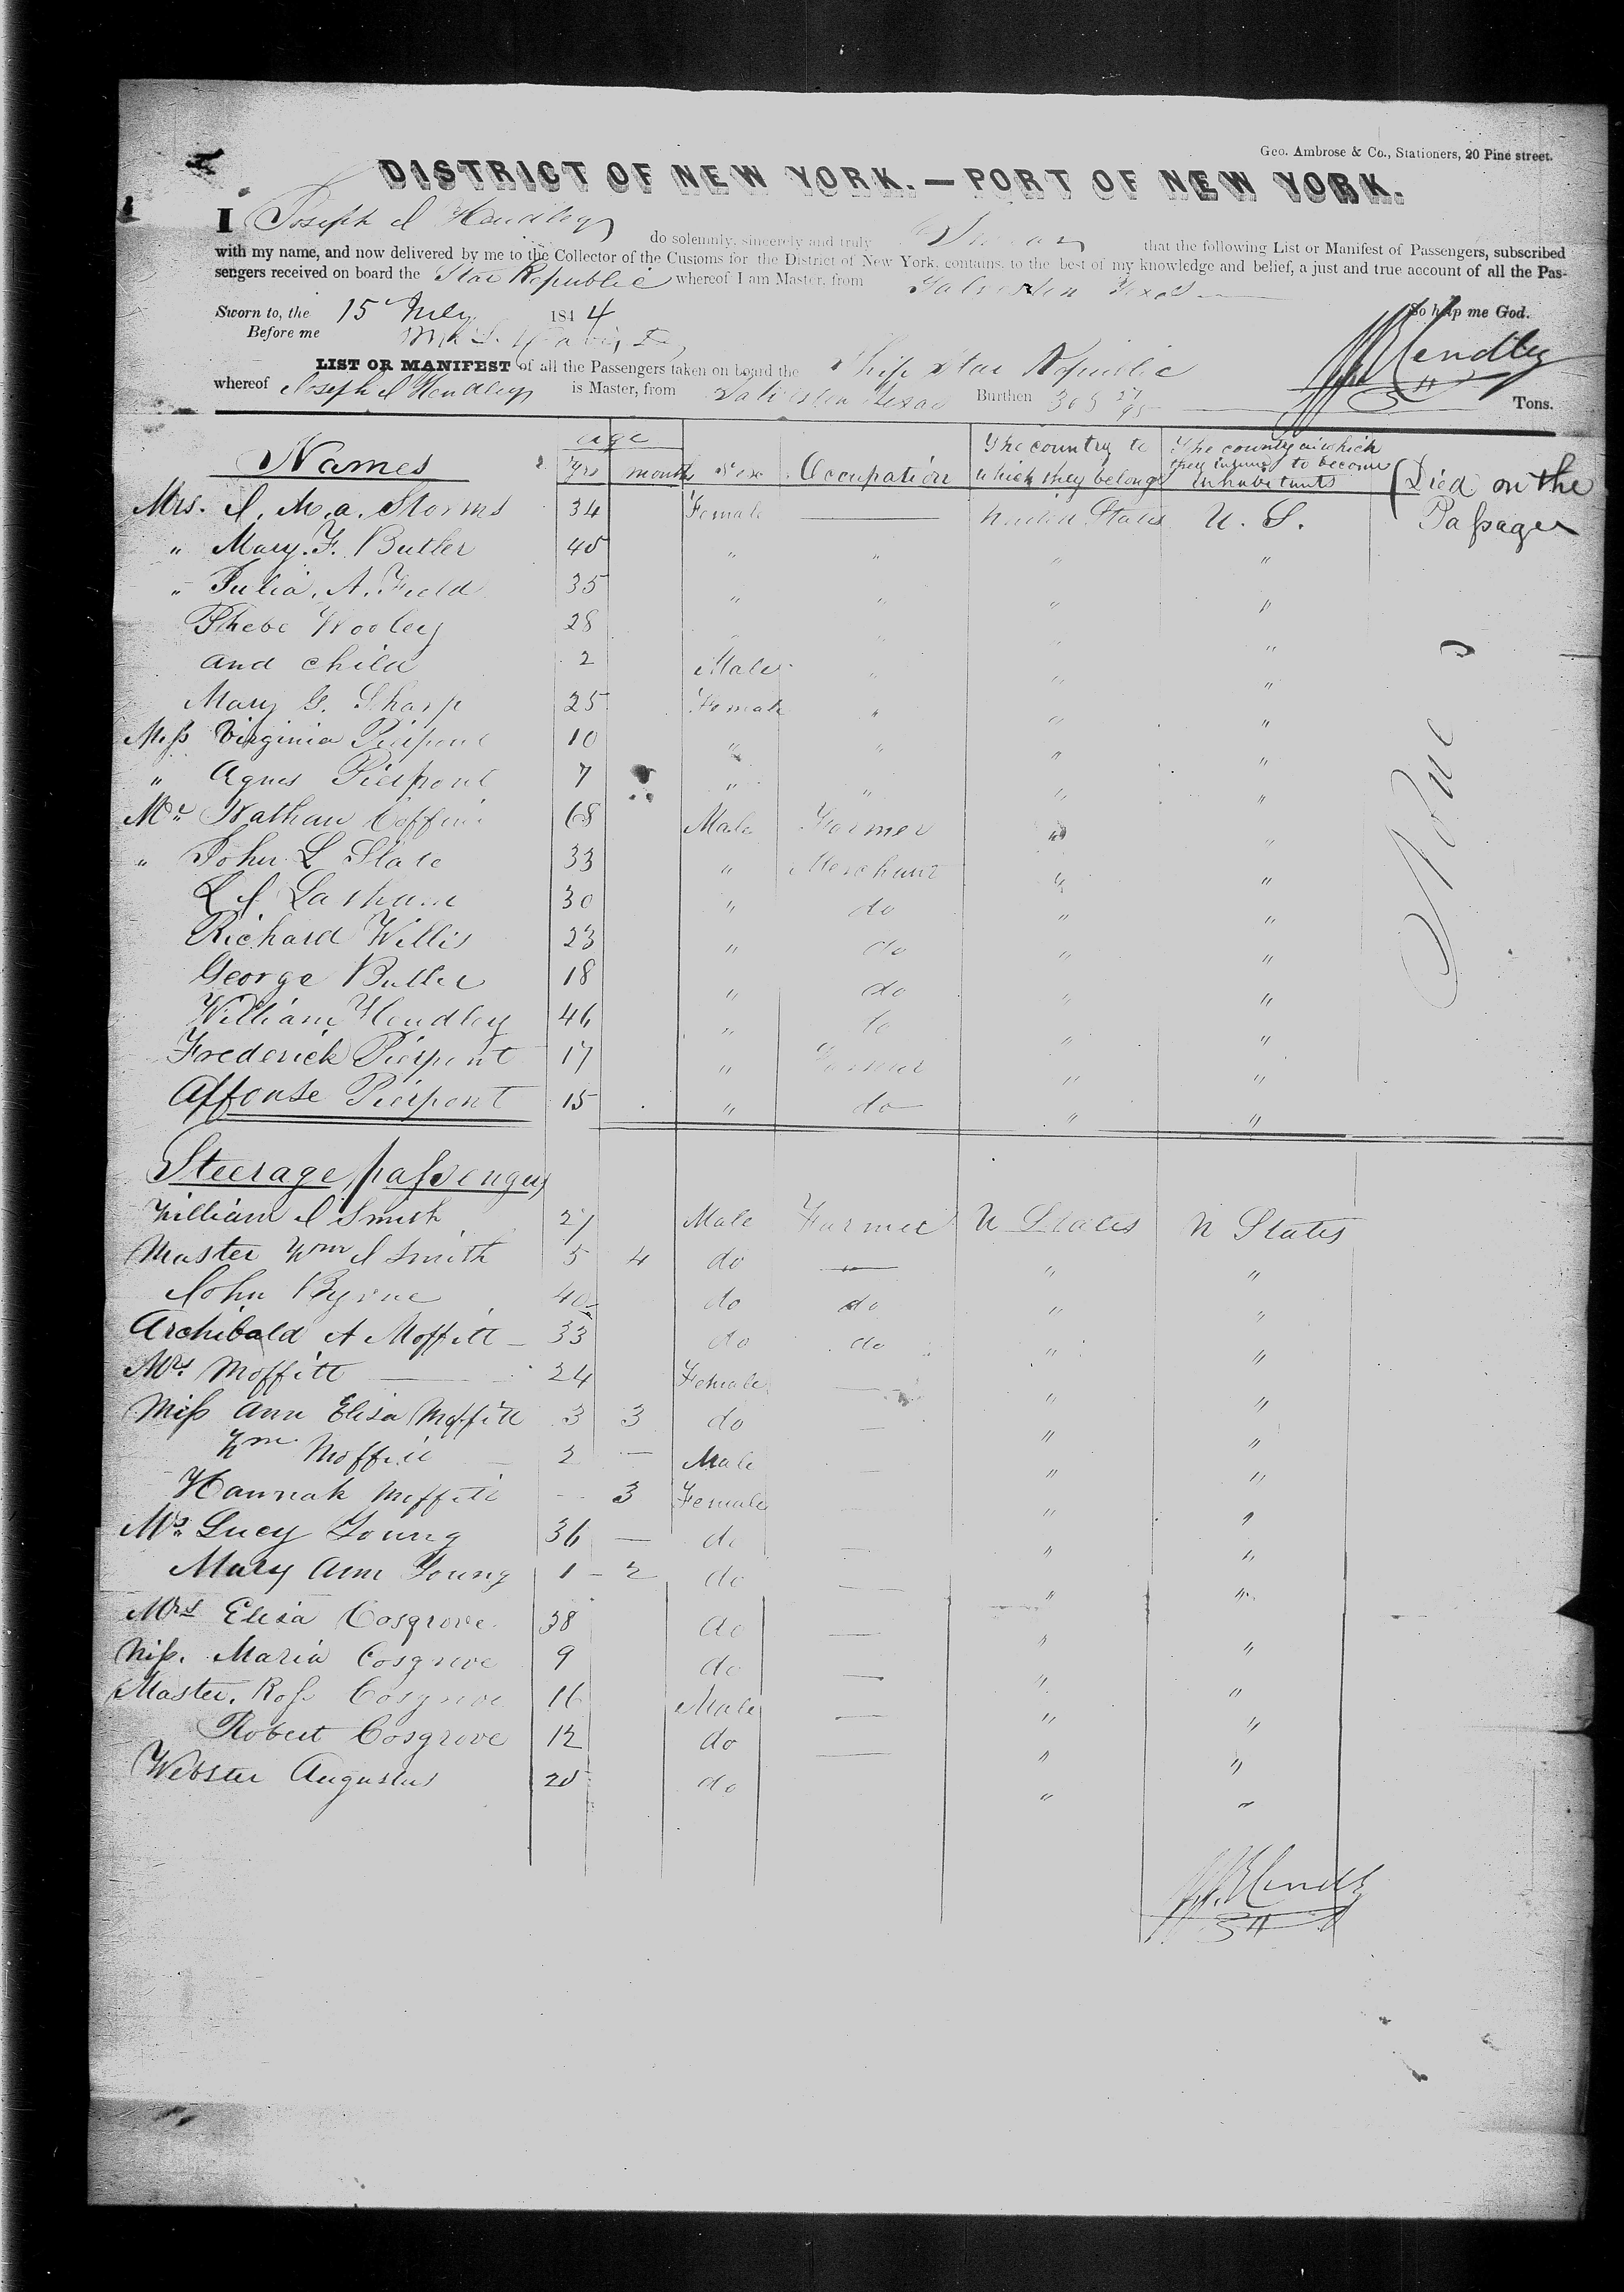 Geo. Ambrose & Co., Stationers, 20 Pine street.
DISTRICT OF NEW YORK.—PORT OF NEW YORK.
I Joseph J Hendley do solemnly, sincerely and truly Swear that the following List or Manifest of Passengers, subscribed
with my name, and now delivered by me to the Collector of the Customs for the District of New York, contains, to the best of my knowledge and belief, a just and true account of all the Pas-
sengers received on board the Star Republic whereof I am Master, from Galveston Texas
Sworn to, the 15 July 1844 So help me God.
Before me
J J Hendley
LIST OR MANIFEST of all the Passengers taken on board the Ship Star Republic
whereof Joseph J Hendley is Master, from Galveston Texas Burthen Tons.
Names age Yrs months Sex Occupation The country to which they belong The country in which they intend to become inhabitants Died on the Passage
Mrs. J. M. a. Storms 34 Female — United States U. S.
" Mary. F. Butler 45 " " " "
" Julia. A. Field 35 " " " "
Phebe Wooley 28 " " " "
and child 2 Male " " "
Mary G. Sharp 25 Female " " "
Miss Virginia Pierpont 10 " " " "
" Agnes Pierpont 7 " " " "
Mr Nathan Coffin 68 Male Farmer " "
" John L Slate 33 " Merchant " "
L J Latham 30 " do " "
Richard Willis 23 " do " "
George Butler 18 " do " "
William Hendley 46 " do " "
Frederick Pierpont 17 " Farmer " "
Affonse Pierpont 15 " do " "
None
Steerage passengers
William J Smith 27 Male Farmer U States U States
Master Wm J Smith 5 4 do — " "
John Byrne 40 do do " "
Archibald A Moffitt 33 do do " "
Mrs Moffitt 24 Female — " "
Miss Ann Elisa Moffitt 3 3 do — " "
Wm Moffitt 2 — Male — " "
Hannah Moffitt — 3 Female — " "
Mrs Lucy Young 36 — do — " "
Mary Ann Young 1 - 2 do — " "
Mrs Elisa Cosgrove 38 do — " "
Miss. Maria Cosgrove 9 do — " "
Master. Ross Cosgrove 16 Male — " "
Robert Cosgrove 12 do — " "
Webster Augustus 25 do " "
J J Hendley